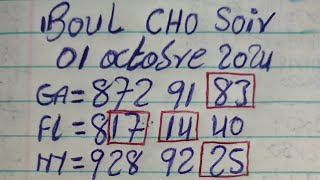 Boul CHO Soir
01 octobre 2024
GA=872 91 83
FL=817 14 40
NY=928 92 25